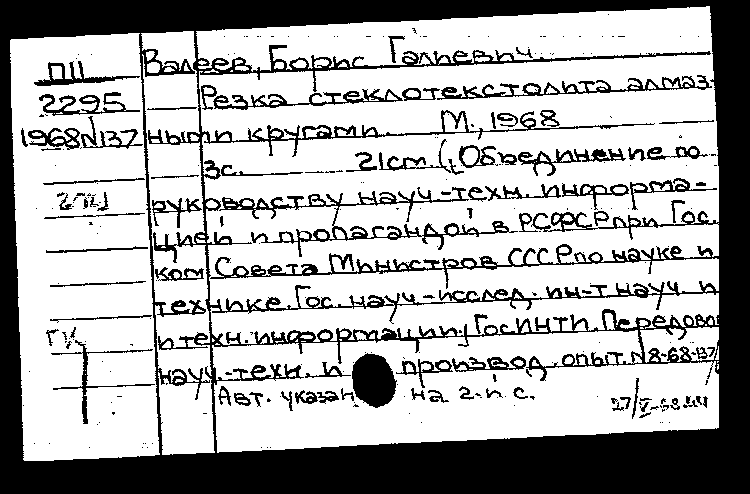 П11 Валеев, Борис Галиевич.
2295 Резка стеклотекстолита алмаз-
1968N137 ными кругами. М., 1968
3с. 21см. (Объединение по
руководству науч.-техн. информа-
цией и пропагандой в РСФСР при Гос.
ком Совета Министров СССР по науке и
технике. Гос. науч.-исслед. ин-т науч. и
и техн. информации. ГОСИНТИ. Передовой
науч.-техн. и производ. опыт. N8-68-137/
Авт. указан на 2-й с.
27/V-68